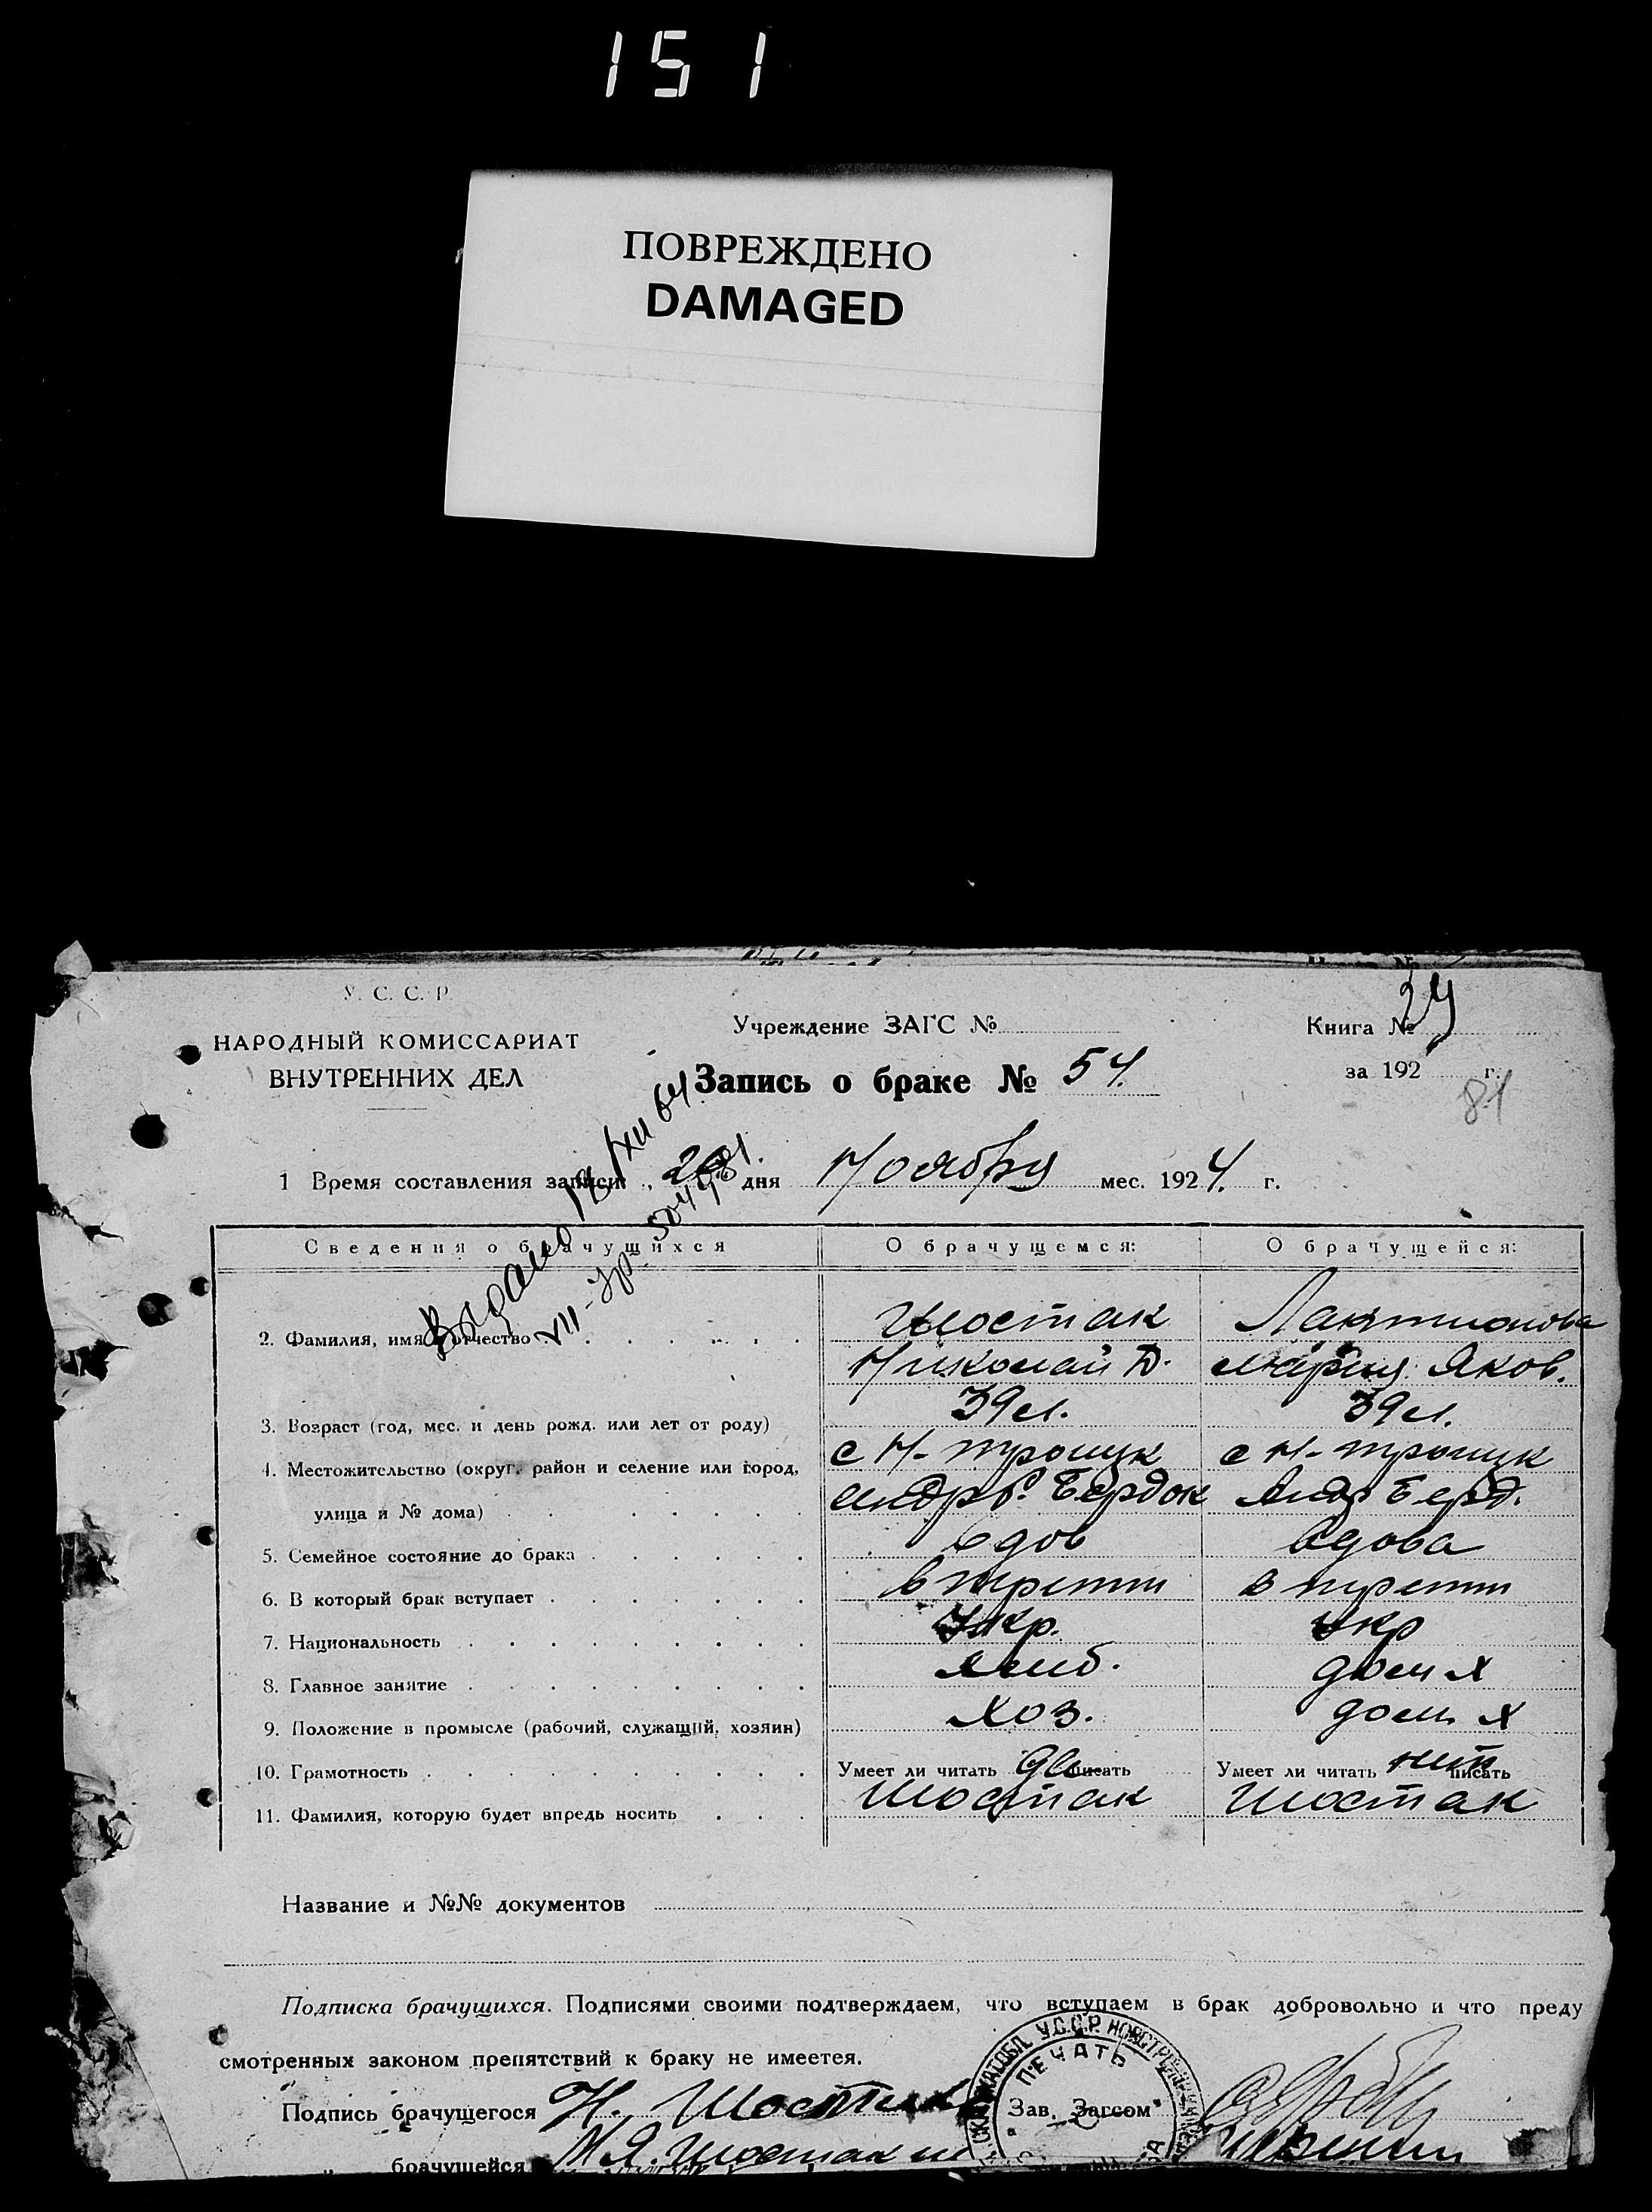 151
ПОВРЕЖДЕНО
DAMAGED
У. С. С. Р.
НАРОДНЫЙ КОМИССАРИАТ
ВНУТРЕННИХ ДЕЛ
Учреждение ЗАГС №
Запись о браке № 54.
Книга №
за 192 г.
81
Выдано
1 Время составления записи: дня Ноября мес. 1924. г.
Сведения о брачущихся О брачущемся: О брачущейся:
2. Фамилия, имя и отчество Шостак Лактионова
Николай Д. Мария Яков.
3. Возраст (год, мес. и день рожд. или лет от роду) 39 л. 39 л.
4. Местожительство (округ, район и селение или город, с Н- троицк с Н- троицк
улица и № дома) Бердян Берд.
5. Семейное состояние до брака вдов вдова
6. В который брак вступает в трети в трети
7. Национальность Укр. Укр
8. Главное занятие хлиб. дом х
9. Положение в промысле (рабочий, служащий, хозяин) хоз. дом х
10. Грамотность Умеет ли читать да писать Умеет ли читать нет писать
11. Фамилия, которую будет впредь носить Шостак Шостак
Название и №№ документов
Подписка брачущихся. Подписями своими подтверждаем, что вступаем в брак добровольно и что преду
смотренных законом препятствий к браку не имеетея.
ПЕЧАТЬ
Подпись брачущегося Н. Шостак Зав. Загсом
брачущейся М.Я. Шостак